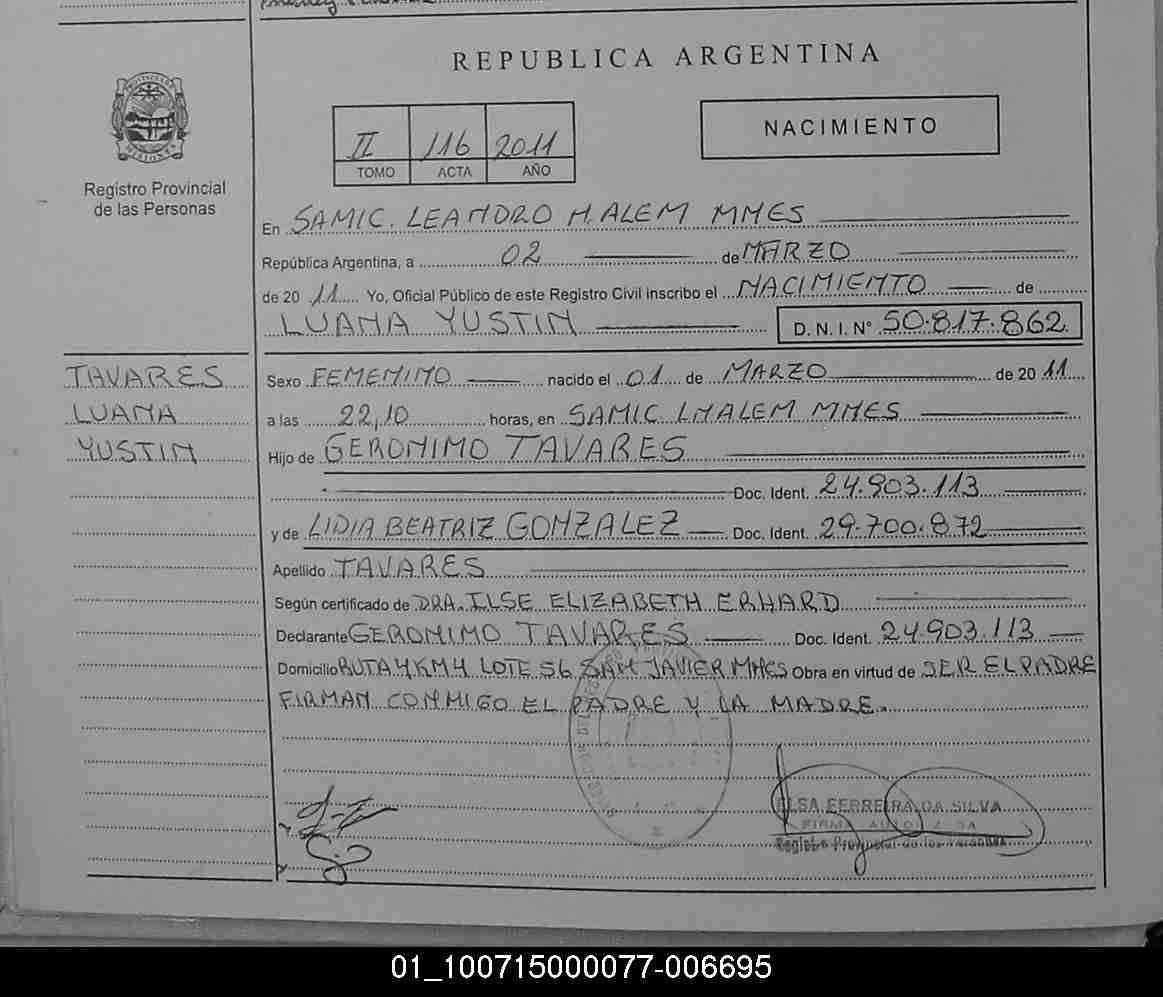 REPUBLICA ARGENTINA
PROVINCIA DE
MISIONES
Registro Provincial
de las Personas
II 116 2011
TOMO ACTA AÑO
NACIMIENTO
En SAMIC. LEANDRO N. ALEM MNES
República Argentina, a 02 de MARZO
de 20 11 Yo, Oficial Público de este Registro Civil inscribo el NACIMIENTO de
LUANA YUSTIN D. N. I. N° 50.817.862
TAVARES
LUANA
YUSTIN
Sexo FEMENINO nacido el 01 de MARZO de 20 11
a las 22,10 horas, en SAMIC LNALEM MNES
Hijo de GERONIMO TAVARES
Doc. Ident. 24.903.113
y de LIDIA BEATRIZ GONZALEZ Doc. Ident. 29.700.872
Apellido TAVARES
Según certificado de DRA. ILSE ELIZABETH ERHARD
Declarante GERONIMO TAVARES Doc. Ident. 24.903.113
Domicilio RUTA 4 KM 4 LOTE 56 SAN JAVIER MNES Obra en virtud de SER EL PADRE
FIRMAN CONMIGO EL PADRE Y LA MADRE.
ELSA FERREIRA DA SILVA
FIRMA AUTORIZADA
Registro Provincial de las Personas
01_100715000077-006695